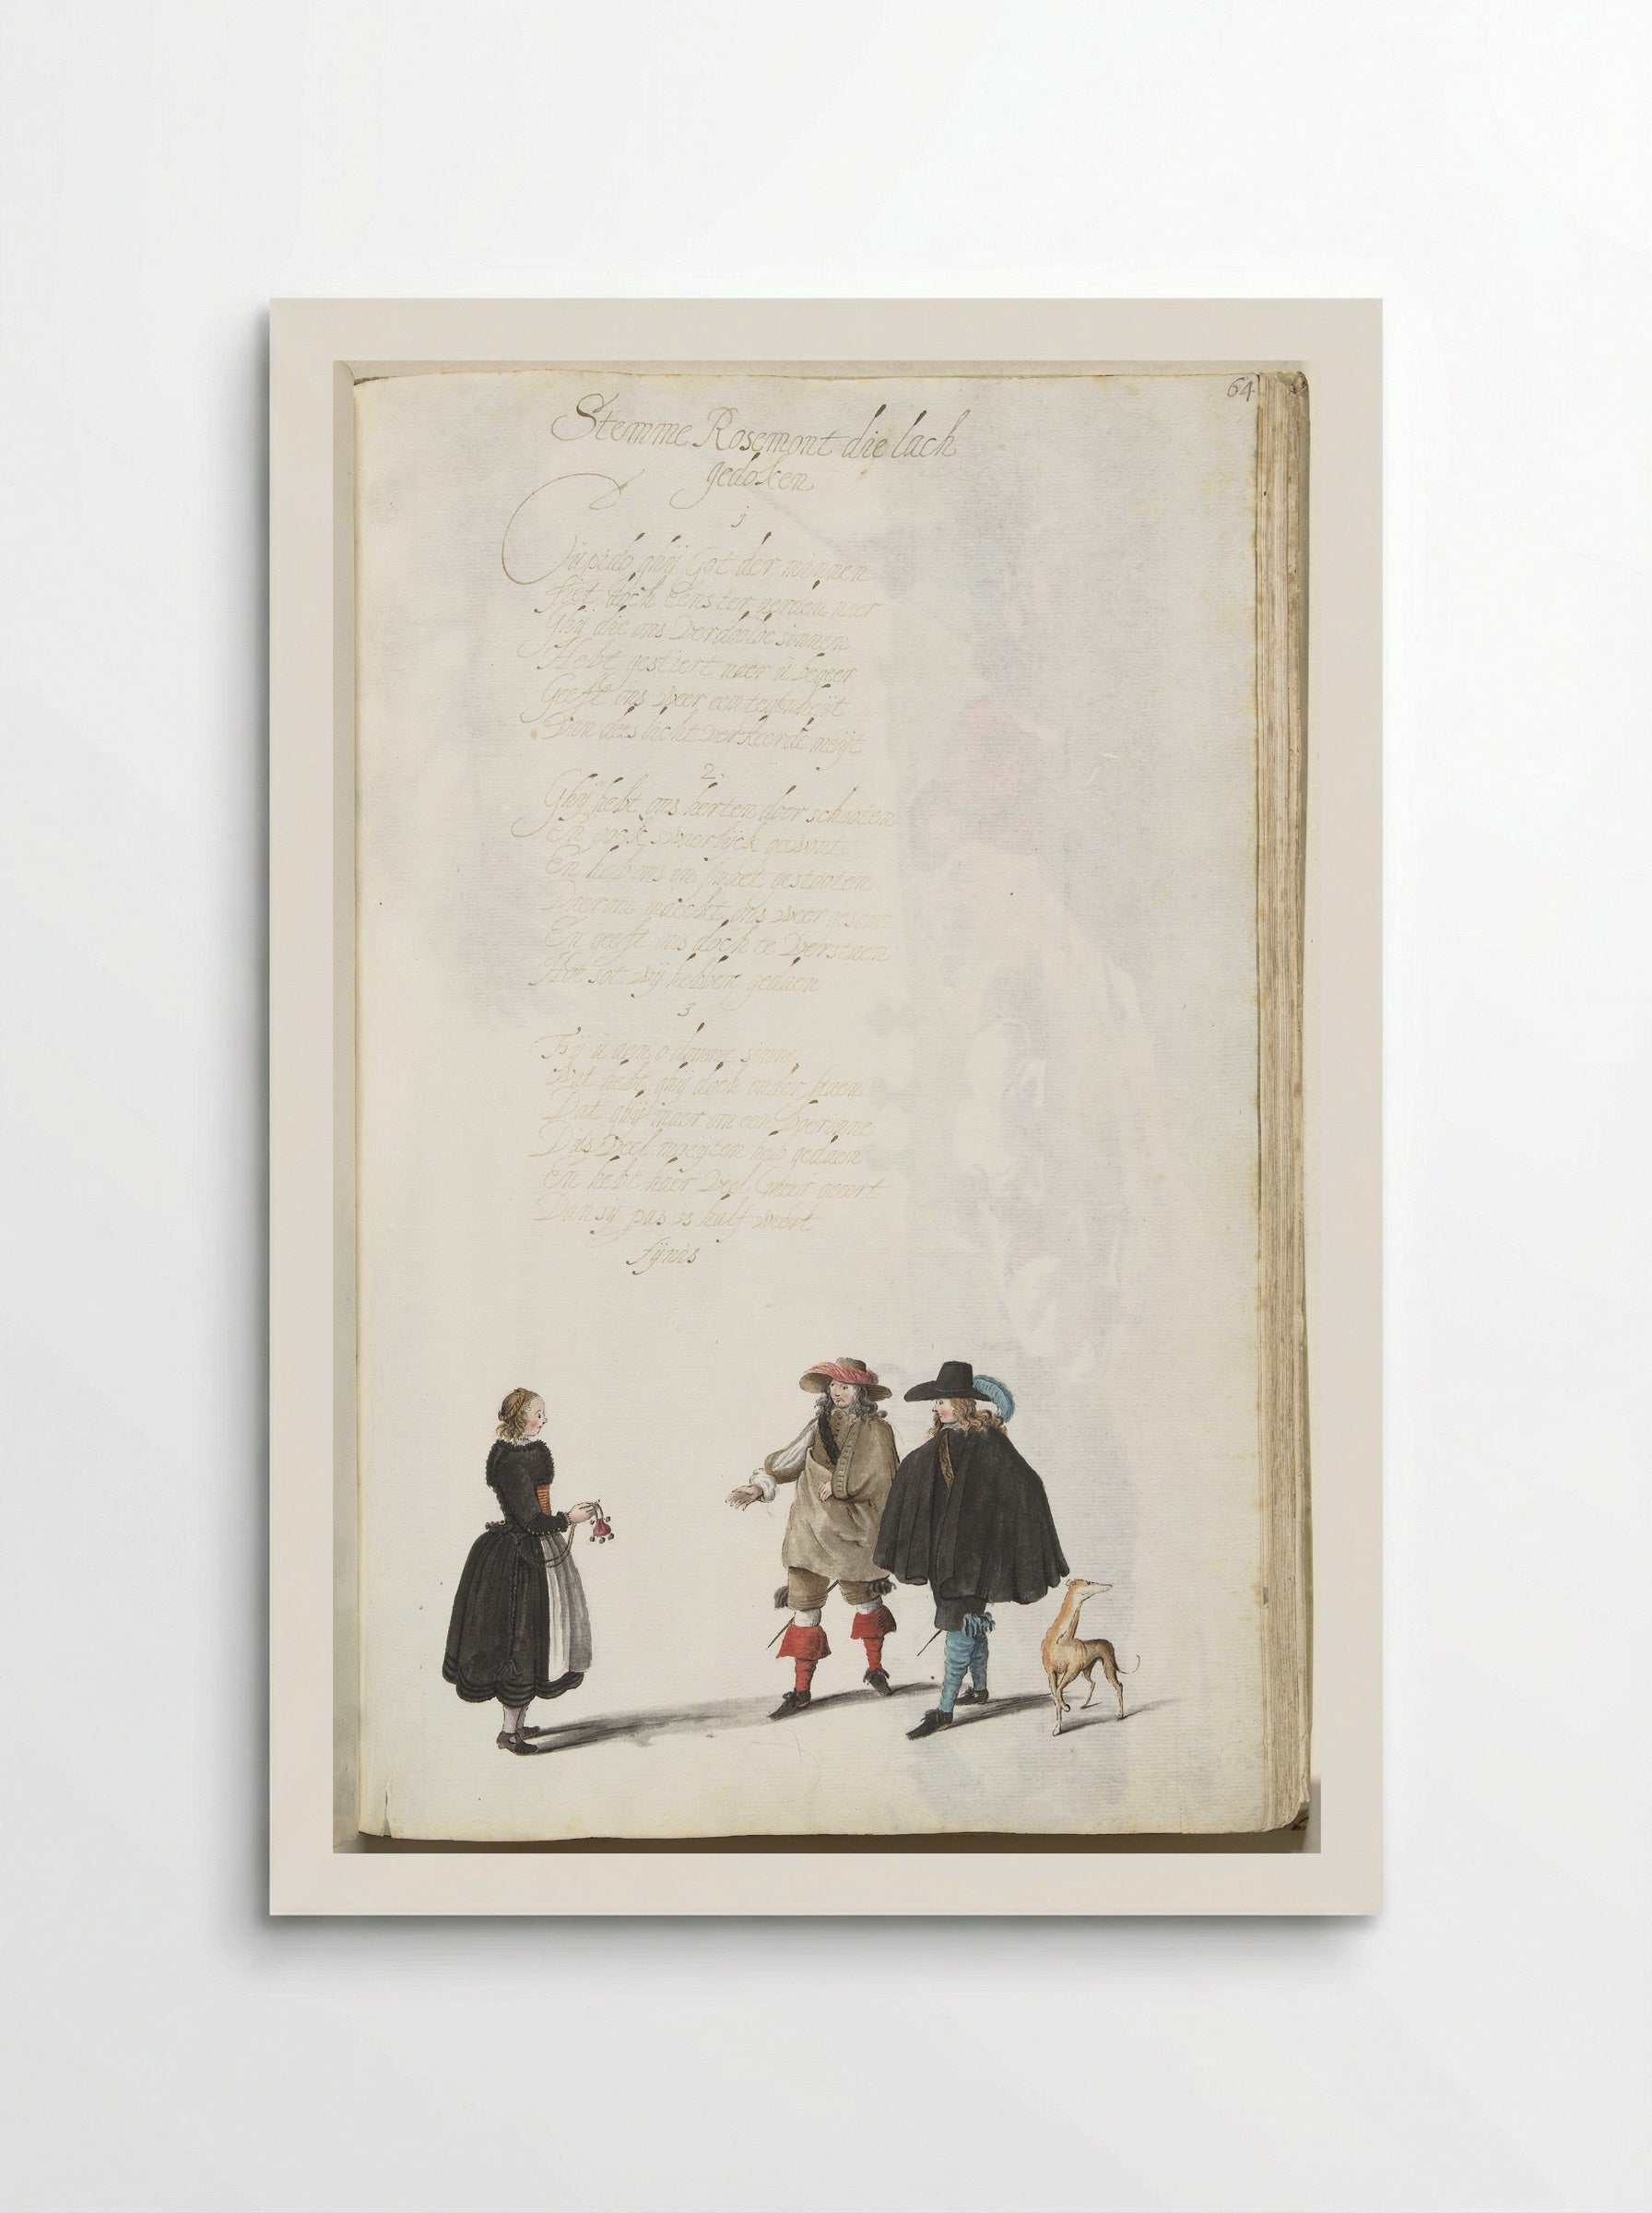 64
Stemme Rosemont die lach
gedoken
1
Cupido ghij Got der minnen
siet doch eens ter neer
Ghij die ons verdoolde sinnen
Hebt gestiert naer u begeer
Geeft ons weer een
Van dees licht verkeerde meijt
2.
Ghij hebt ons herten door schooten
En oock swaerlijck gewont
En heb ons in gestooten
Daerom maeckt ons weer gesont
En geeft ons doch te verstaen
Hoe sot wij hebben gedaen
3
Fij u aen o domme sinne
Wat hebt ghij doch onder staen
Dat ghij maer om een boerinne
Dus veel moeijten heb gedaen
En hebt haer veel meer geeert
Dan sij pas is half weert
fijnis